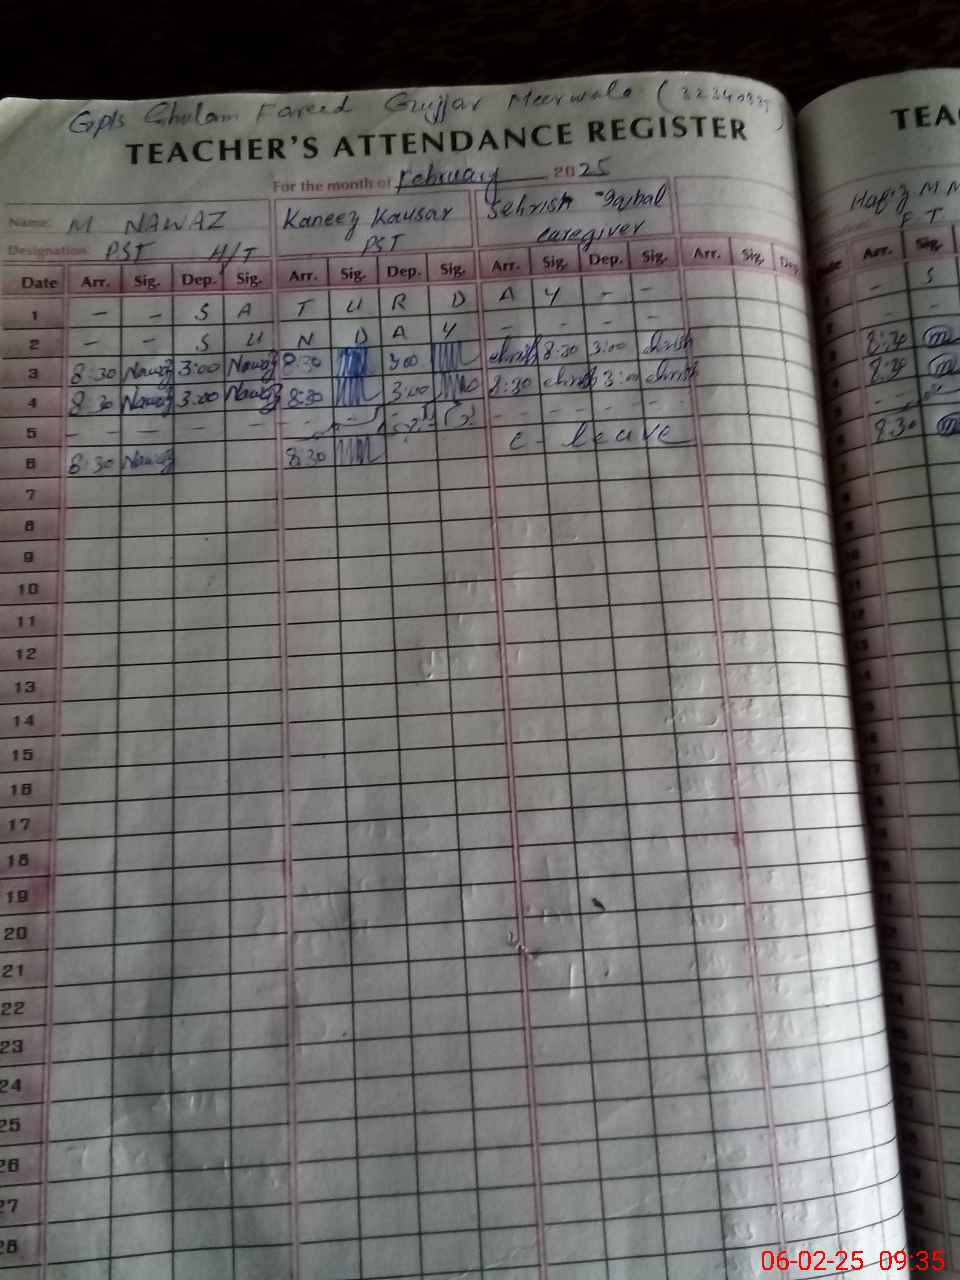 Gpls Ghulam Fareed Gujjar Meerwala (
TEACHER'S ATTENDANCE REGISTER TEA
For the month of February 2025
Name: M NAWAZ Kaneez Kausar Sehrish Iqbal Hafiz M
Designation: PST H/T PST caregiver
Date Arr. Sig. Dep. Sig. Arr. Sig. Dep. Sig. Arr. Sig. Dep. Sig. Arr. Sig. Dep. Arr. Sig.
1 - - S A T U R D A Y - - - S
2 - - S U N D A Y - - - - - -
3 8:30 Nawaz 3:00 Nawaz 8:30 3:00 8:30 3:00 8:30
4 8:30 Nawaz 3:00 Nawaz 8:30 3:00 8:30 3:00 8:30
5 - - - -
6 8:30 Nawaz 8:30 C - leave 8:30
7
8
9
10
11
12
13
14
15
16
17
18
19
20
21
22
23
24
25
26
27
28
06-02-25 09:35